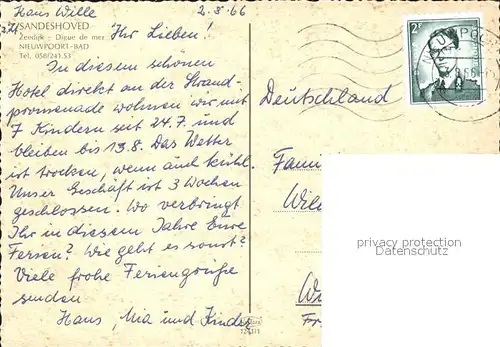 Hans Wille 2.8.66
SANDESHOVED
Zeedijk - Digue de mer
NIEUWPOORT-BAD
Tel. 058/241.53
Ihr Lieben!
In diesem schönen
Hotel direkt an der Strand-
promenade wohnen wir mit
7 Kindern seit 24.7. und
bleiben bis 13.8. Das Wetter
ist trocken, wenn auch kühl.
Unser Geschäft ist 3 Wochen
geschlossen. Wo verbringt
Ihr in diesem Jahre Eure
Ferien? Wie geht es sonst?
Viele frohe Feriengrüße
senden
Hans, Mia und Kinder
2F
Deutschland
Fami
Wil
privacy protection
Datenschutz
W
Fr